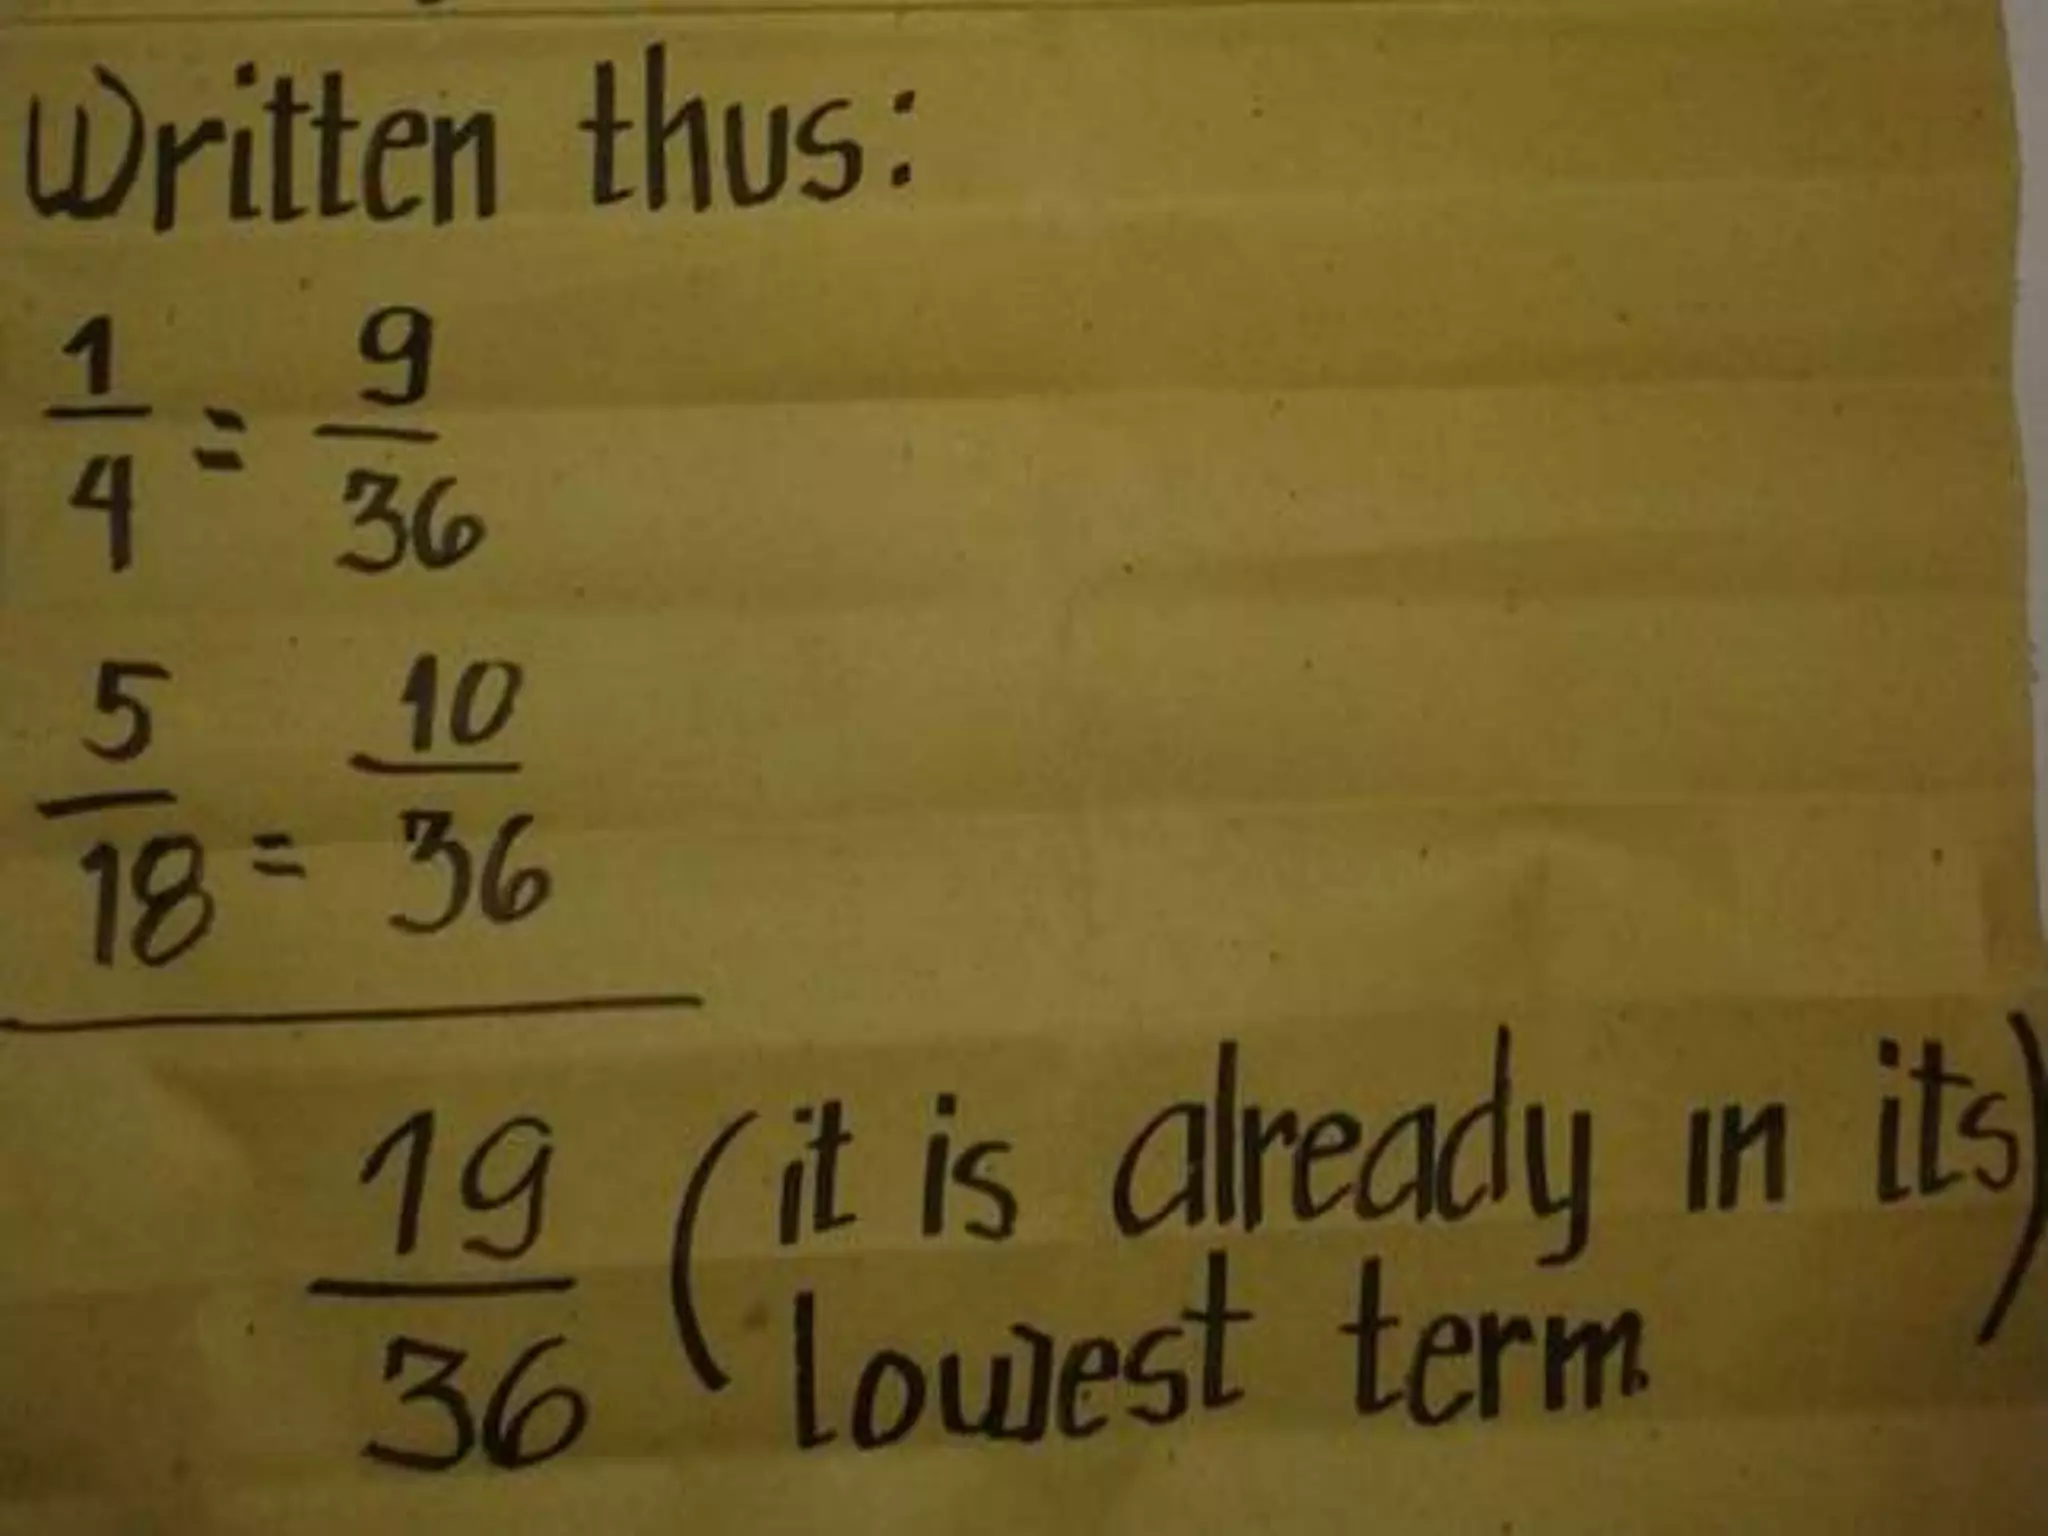 Written thus:
1/4 = 9/36
5/18 = 10/36
19/36 (it is already in its)
lowest term.